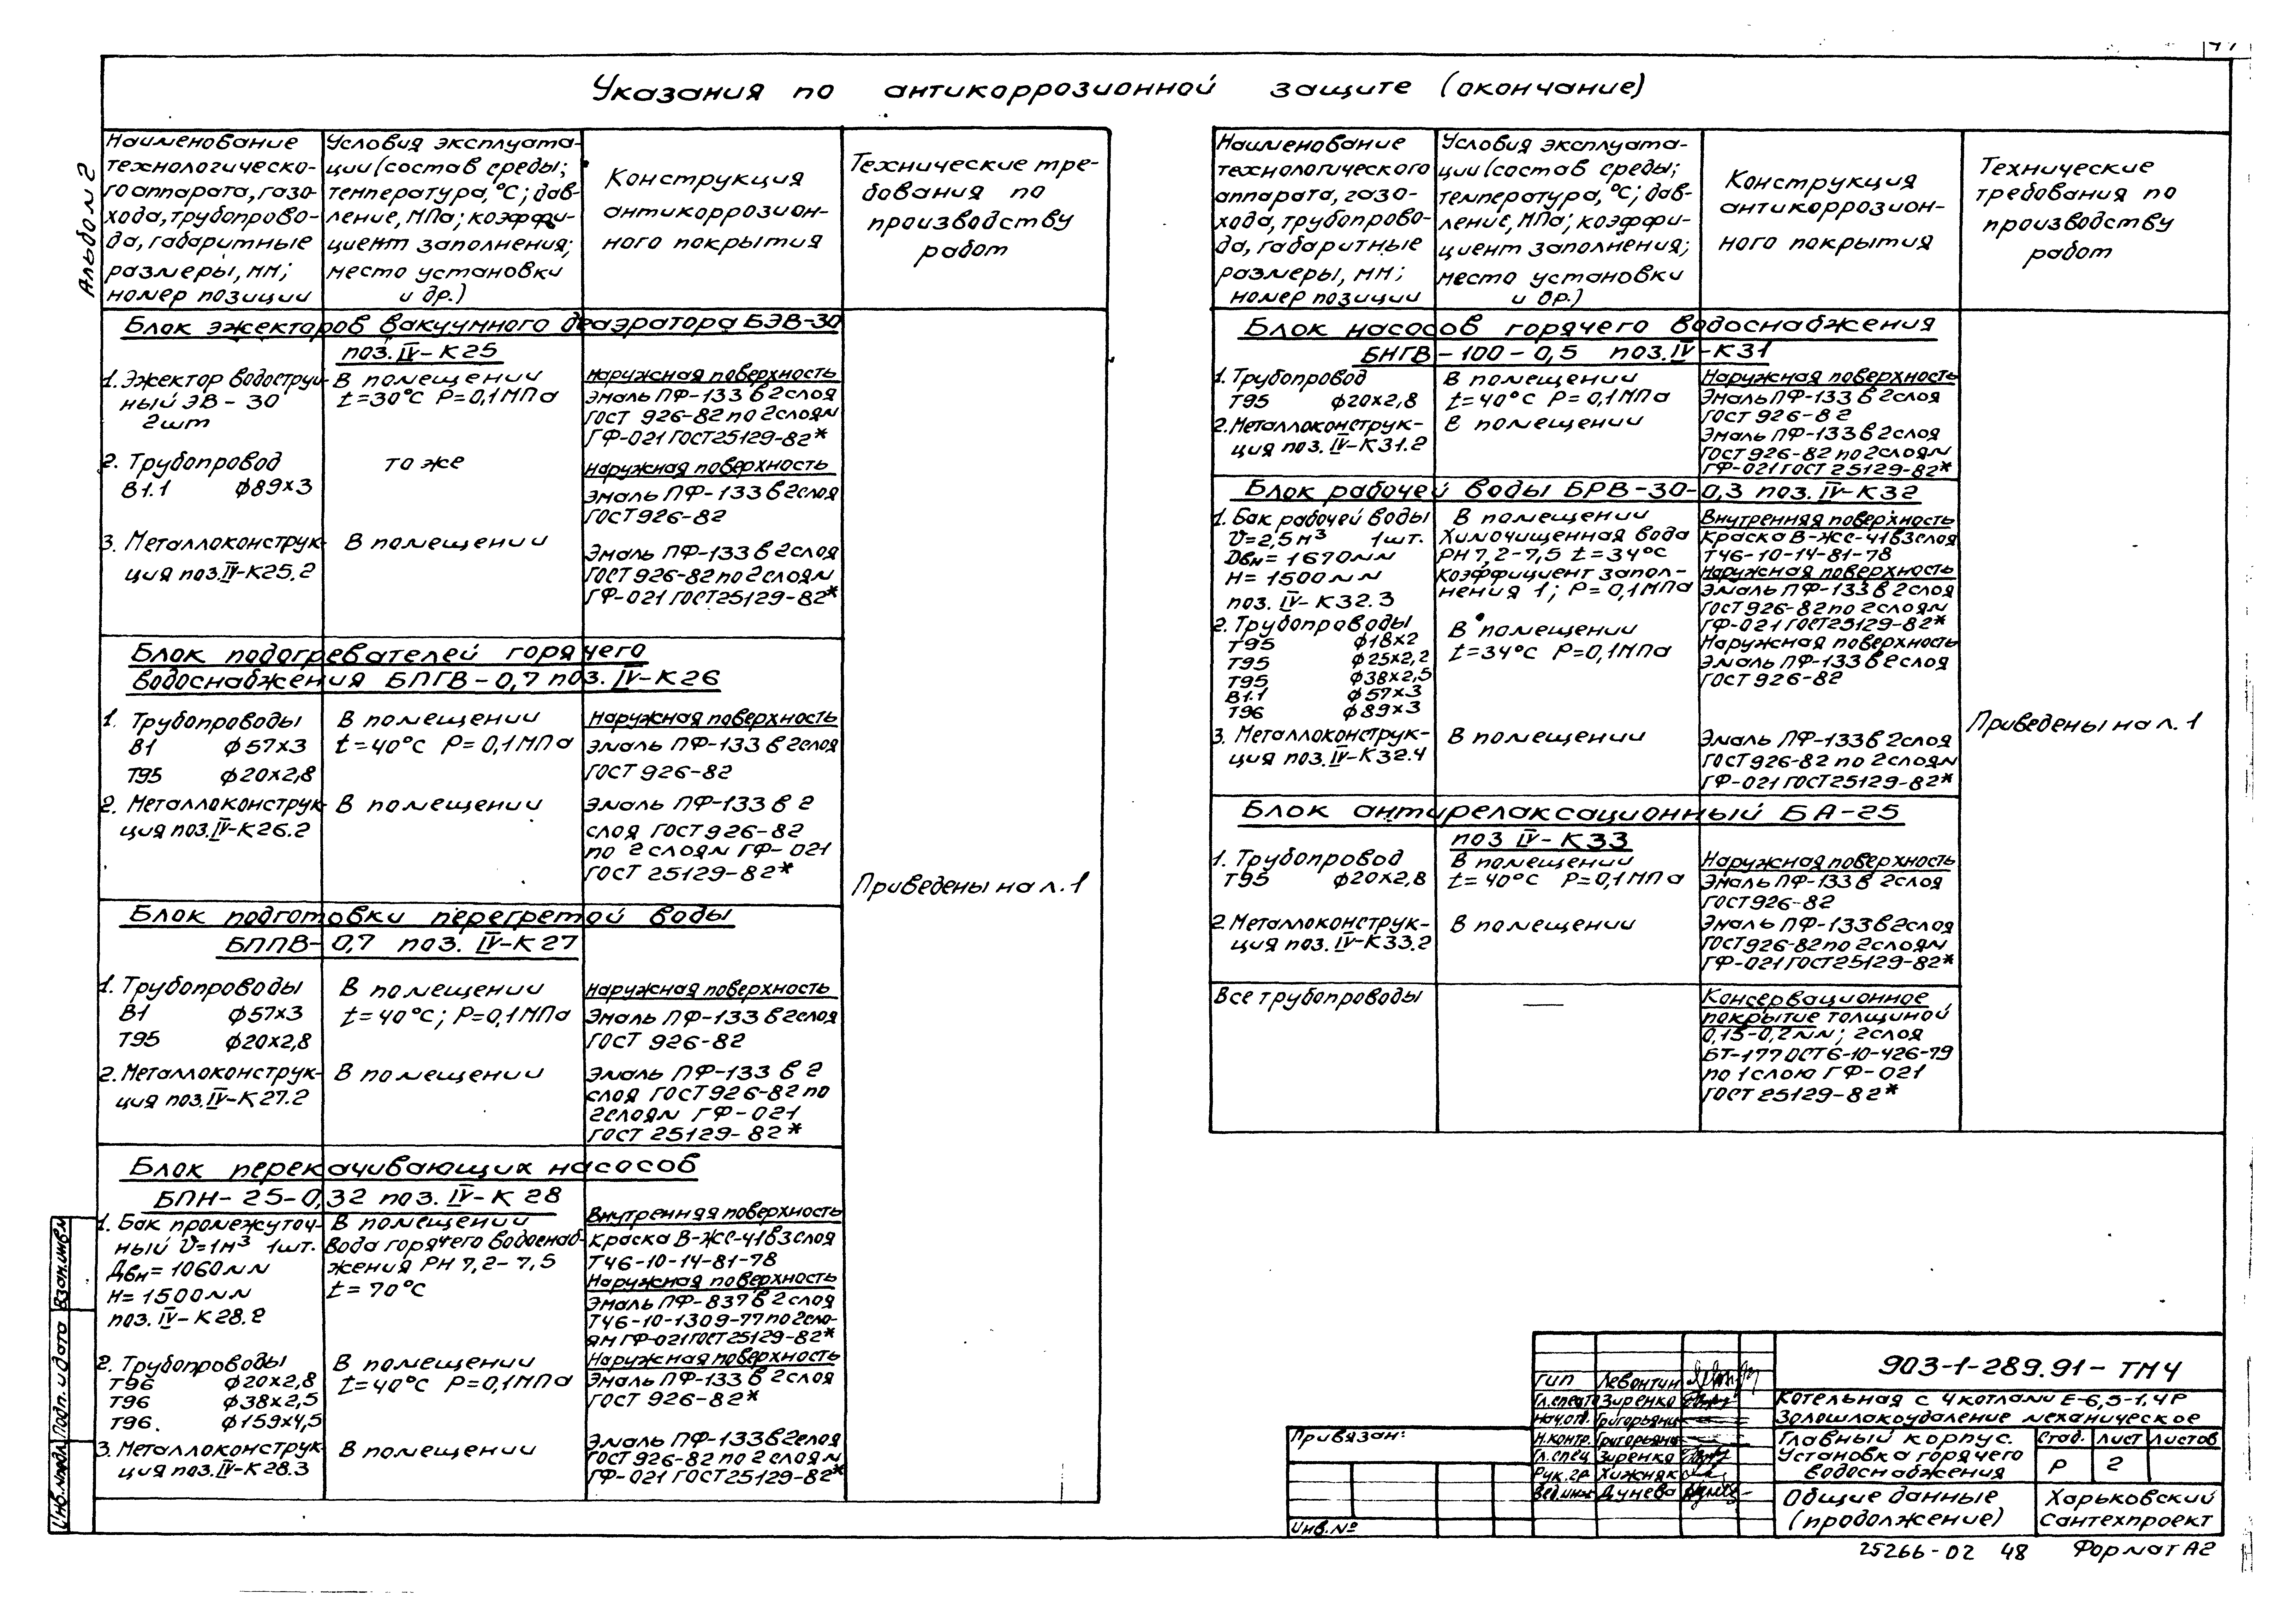 Указания по антикоррозионной защите (окончание)
Альбом 2
Наименование
технологическо-
го аппарата, газо-
хода, трубопрово-
да, габаритные
размеры, мм;
номер позиции
Условия эксплуата-
ции (состав среды;
температура, °С; дав-
ление, МПа; коэффи-
циент заполнения;
место установки
и др.)
Конструкция
антикоррозион-
ного покрытия
Технические тре-
бования по
производству
работ
Блок эжекторов вакуумного деаэратора БЭВ-30
поз. IV-К25
1. Эжектор водоструй-
ный ЭВ-30
2шт
В помещении
t=30°С Р=0,1МПа
Наружная поверхность
Эмаль ПФ-133 в 2слоя
ГОСТ 926-82 по 2слоям
ГФ-021 ГОСТ25129-82*
2. Трубопровод
В1.1 ф89х3
то же
Наружная поверхность
Эмаль ПФ-133 в 2слоя
ГОСТ 926-82
3. Металлоконструк-
ция поз. IV-К25.2
В помещении
Эмаль ПФ-133 в 2слоя
ГОСТ 926-82 по 2слоям
ГФ-021 ГОСТ25129-82*
Блок подогревателей горячего
водоснабжения БПГВ-0,7 поз. IV-К26
1. Трубопроводы
В1 ф57х3
Т95 ф20х2,8
В помещении
t=40°С Р=0,1МПа
Наружная поверхность
Эмаль ПФ-133 в 2слоя
ГОСТ 926-82
2. Металлоконструк-
ция поз. IV-К26.2
В помещении
Эмаль ПФ-133 в 2
слоя ГОСТ 926-82
по 2 слоям ГФ-021
ГОСТ 25129-82*
Блок подготовки перегретой воды
БППВ-0,7 поз. IV-К27
1. Трубопроводы
В1 ф57х3
Т95 ф20х2,8
В помещении
t=40°С; Р=0,1МПа
Наружная поверхность
Эмаль ПФ-133 в 2слоя
ГОСТ 926-82
2. Металлоконструк-
ция поз. IV-К27.2
В помещении
Эмаль ПФ-133 в 2
слоя ГОСТ 926-82 по
2слоям ГФ-021
ГОСТ 25129-82*
Блок перекачивающих насосов
БПН-25-0,32 поз. IV-К28
1. Бак промежуточ-
ный V=1м³ 1шт.
Двн=1060мм
Н=1500мм
поз. IV-К28.2
В помещении
Вода горячего водоснаб-
жения РН 7,2-7,5
t=70°С
Внутренняя поверхность
Краска В-ЖС-41 в 3слоя
ТУ6-10-14-81-78
Наружная поверхность
Эмаль ПФ-837 в 2слоя
ТУ6-10-1309-77 по 2сло-
ям ГФ-021 ГОСТ 25129-82*
2. Трубопроводы
Т96 ф20х2,8
Т96 ф38х2,5
Т96. ф159х4,5
В помещении
t=40°С Р=0,1МПа
Наружная поверхность
Эмаль ПФ-133 в 2слоя
ГОСТ 926-82*
3. Металлоконструк-
ция поз. IV-К28.3
В помещении
Эмаль ПФ-133 в 2слоя
ГОСТ 926-82 по 2 слоям
ГФ-021 ГОСТ25129-82*
Приведены на л. 1
Наименование
технологического
аппарата, газо-
хода, трубопрово-
да, габаритные
размеры, мм;
номер позиции
Условия эксплуата-
ции (состав среды;
температура, °С; дав-
ление, МПа; коэффи-
циент заполнения;
место установки
и др.)
Конструкция
антикоррозион-
ного покрытия
Технические
требования по
производству
работ
Блок насосов горячего водоснабжения
БНГВ-100-0,5 поз. IV-К31
1. Трубопровод
Т95 ф20х2,8
В помещении
t=40°С Р=0,1МПа
Наружная поверхность
Эмаль ПФ-133 в 2слоя
ГОСТ 926-82
2. Металлоконструк-
ция поз. IV-К31.2
В помещении
Эмаль ПФ-133 в 2слоя
ГОСТ 926-82 по 2слоям
ГФ-021 ГОСТ 25129-82*
Блок рабочей воды БРВ-30-0,3 поз. IV-К32
1. Бак рабочей воды
V=2,5м³ 1шт.
Двн=1670мм
Н=1500мм
поз. IV-К32.3
В помещении
Химочищенная вода
РН 7,2-7,5 t=34°С
Коэффициент запол-
нения 1; Р=0,1МПа
Внутренняя поверхность
Краска В-ЖС-41 в 3слоя
ТУ6-10-14-81-78
Наружная поверхность
Эмаль ПФ-133 в 2слоя
ГОСТ 926-82 по 2слоям
ГФ-021 ГОСТ25129-82*
2. Трубопроводы
Т95 ф18х2
Т95 ф25х2,2
Т95 ф38х2,5
В1.1 ф57х3
Т96 ф89х3
В помещении
t=34°С Р=0,1МПа
Наружная поверхность
Эмаль ПФ-133 в 2слоя
ГОСТ 926-82
3. Металлоконструк-
ция поз. IV-К32.4
В помещении
Эмаль ПФ-133 в 2слоя
ГОСТ 926-82 по 2слоям
ГФ-021 ГОСТ25129-82*
Блок антирелаксационный БА-25
поз IV-К33
1. Трубопровод
Т95 ф20х2,8
В помещении
t=40°С Р=0,1МПа
Наружная поверхность
Эмаль ПФ-133 в 2слоя
ГОСТ 926-82
2. Металлоконструк-
ция поз. IV-К33.2
В помещении
Эмаль ПФ-133 в 2слоя
ГОСТ 926-82 по 2слоям
ГФ-021 ГОСТ25129-82*
Все трубопроводы
—
Консервационное
покрытие толщиной
0,15-0,2мм; 2слоя
БТ-177 ОСТ 6-10-426-79
по 1слою ГФ-021
ГОСТ 25129-82*
Приведены на л. 1
Инв.№подл. Подп. и дата Взам.инв.№
Привязан:
Инв.№
ГИП Левонтин
Гл.спец Зиренко
Нач.отд. Григорьянц
Н.контр. Григорьянц
Гл.спец Зиренко
Рук.гр Хижняк
Вед.инж Дунева
903-1-289.91-ТМ4
Котельная с 4 котлами Е-6,5-1,4Р
Золошлакоудаление механическое
Главный корпус.
Установка горячего
водоснабжения
Стад. Лист Листов
Р 2
Общие данные
(продолжение)
Харьковский
Сантехпроект
25266-02 48 Формат А2